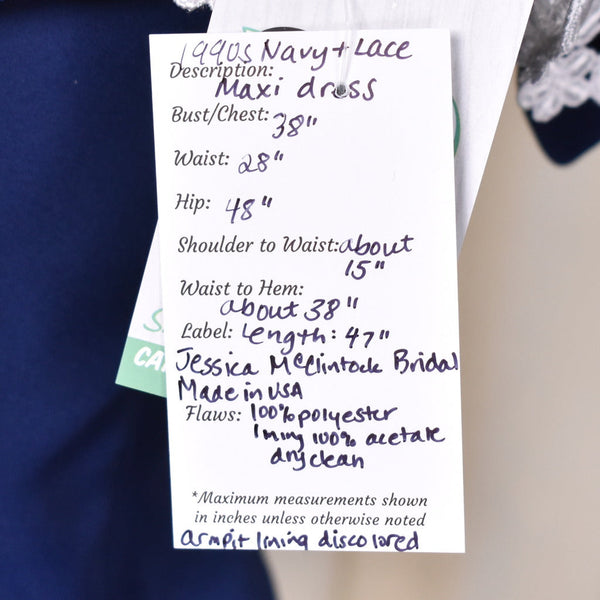 1990s Navy + Lace
Description:
Maxi dress
Bust/Chest: 38"
Waist: 28"
Hip: 48"
Shoulder to Waist: about
15"
Waist to Hem:
about 38"
Label: Length: 47"
Jessica McClintock Bridal
Made in USA
Flaws: 100% polyester
lining 100% acetate
dryclean
*Maximum measurements shown
in inches unless otherwise noted
armpit lining discolored